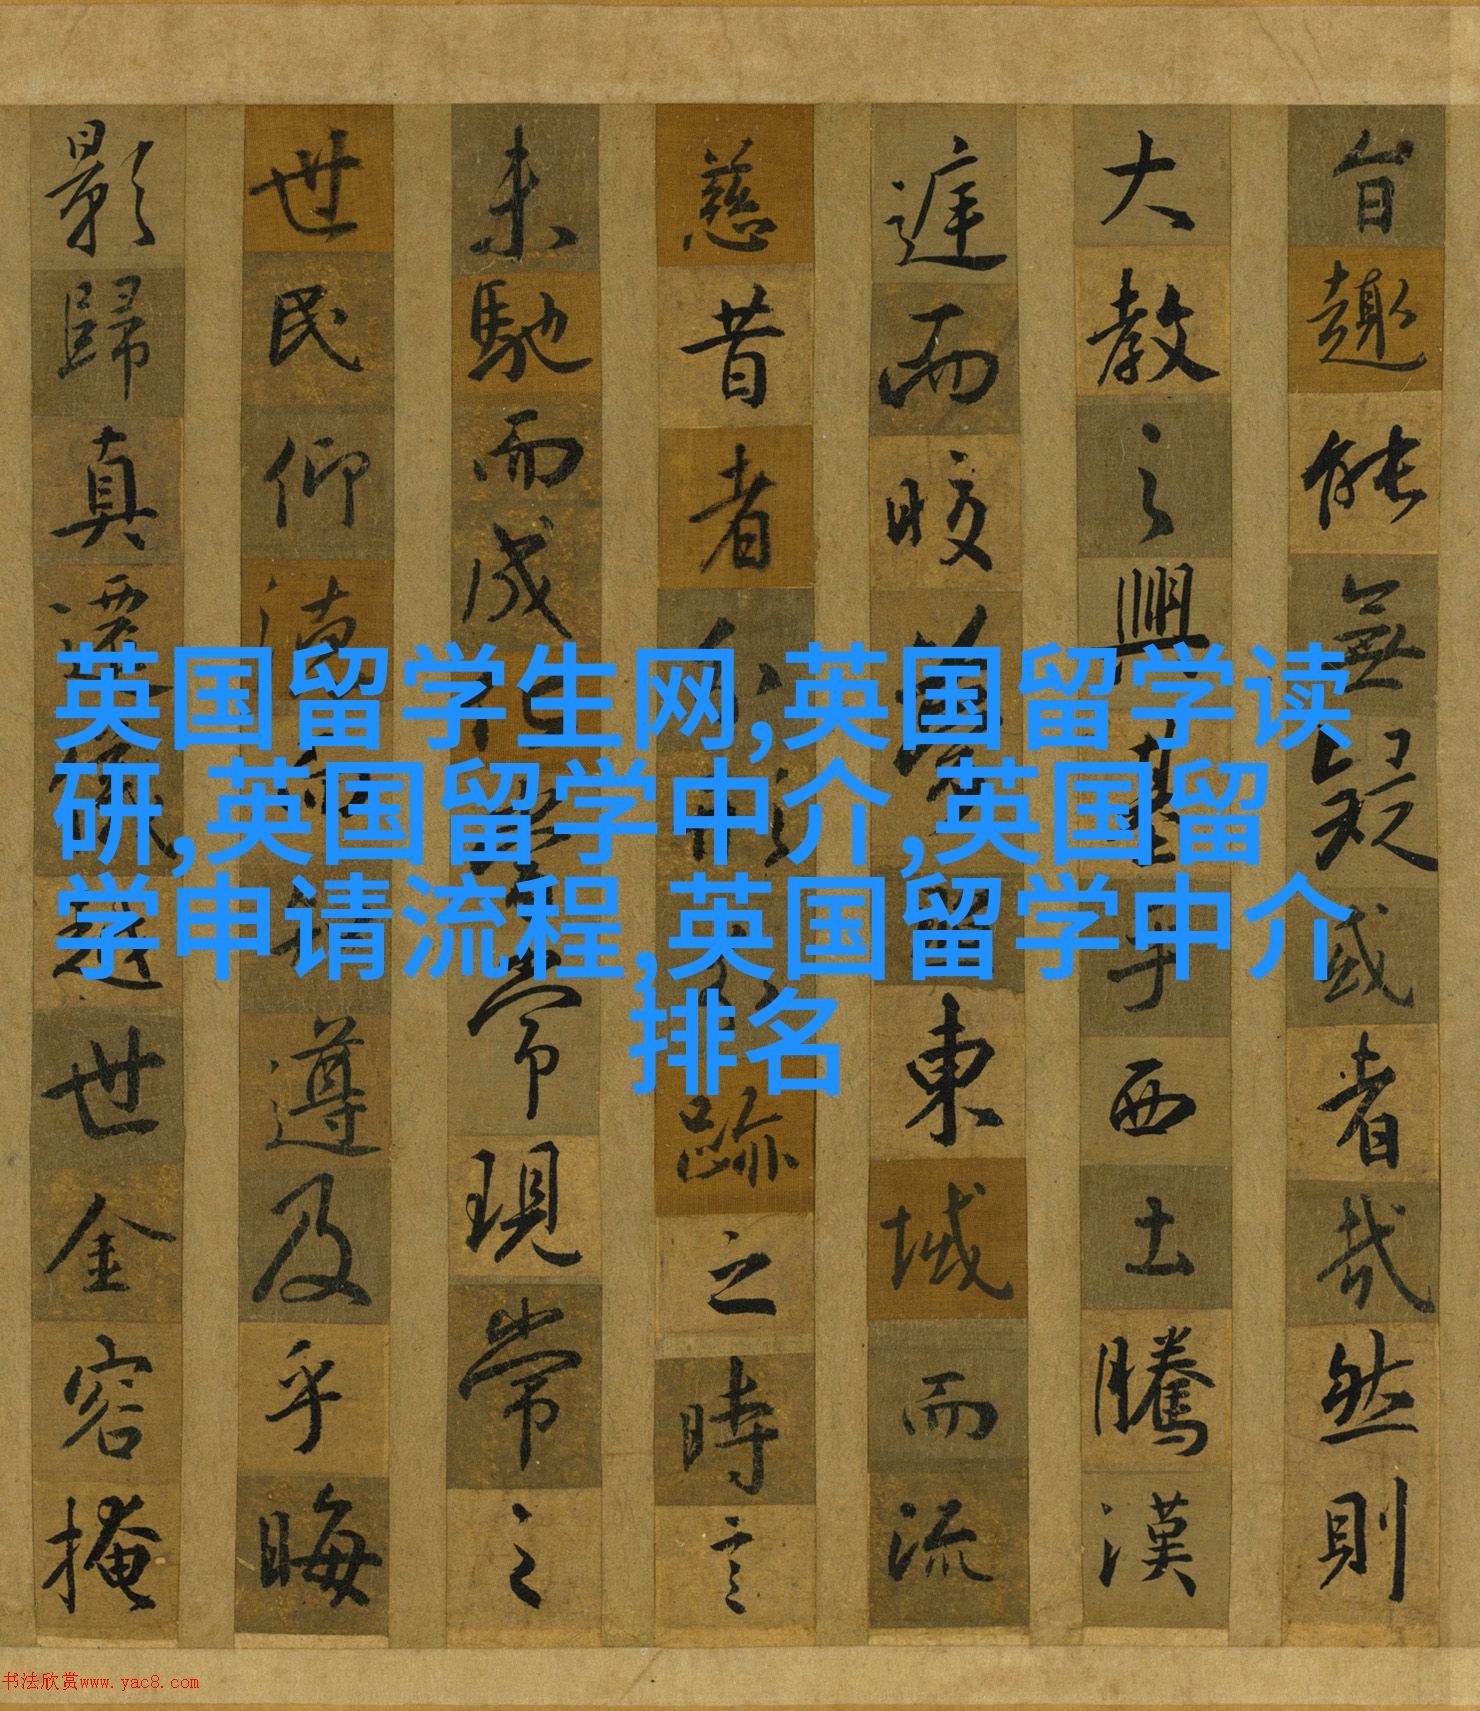 旨趣能無疑或者哉然則
大教之興基乎西土騰漢
庭而皎夢照東域而流
慈昔者分形分跡之時言
未馳而成化當常現常之
世民仰德而知遵及乎晦
影歸真遷儀越世金容掩
英国留学生网,英国留学读
研,英国留学中介,英国留
学申请流程,英国留学中介
排名
书法欣赏www.yac8.com